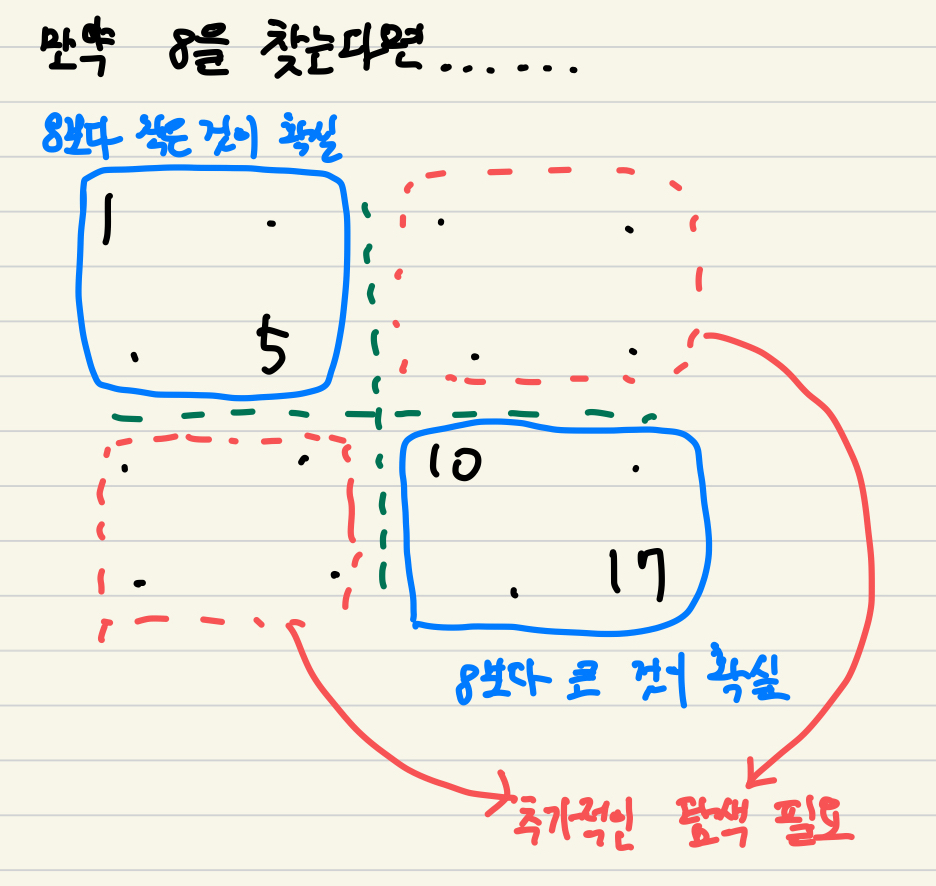 만약 8을 찾는다면......
8보다 작은 것이 확실
1
5
10
17
8보다 큰 것이 확실
추가적인 탐색 필요